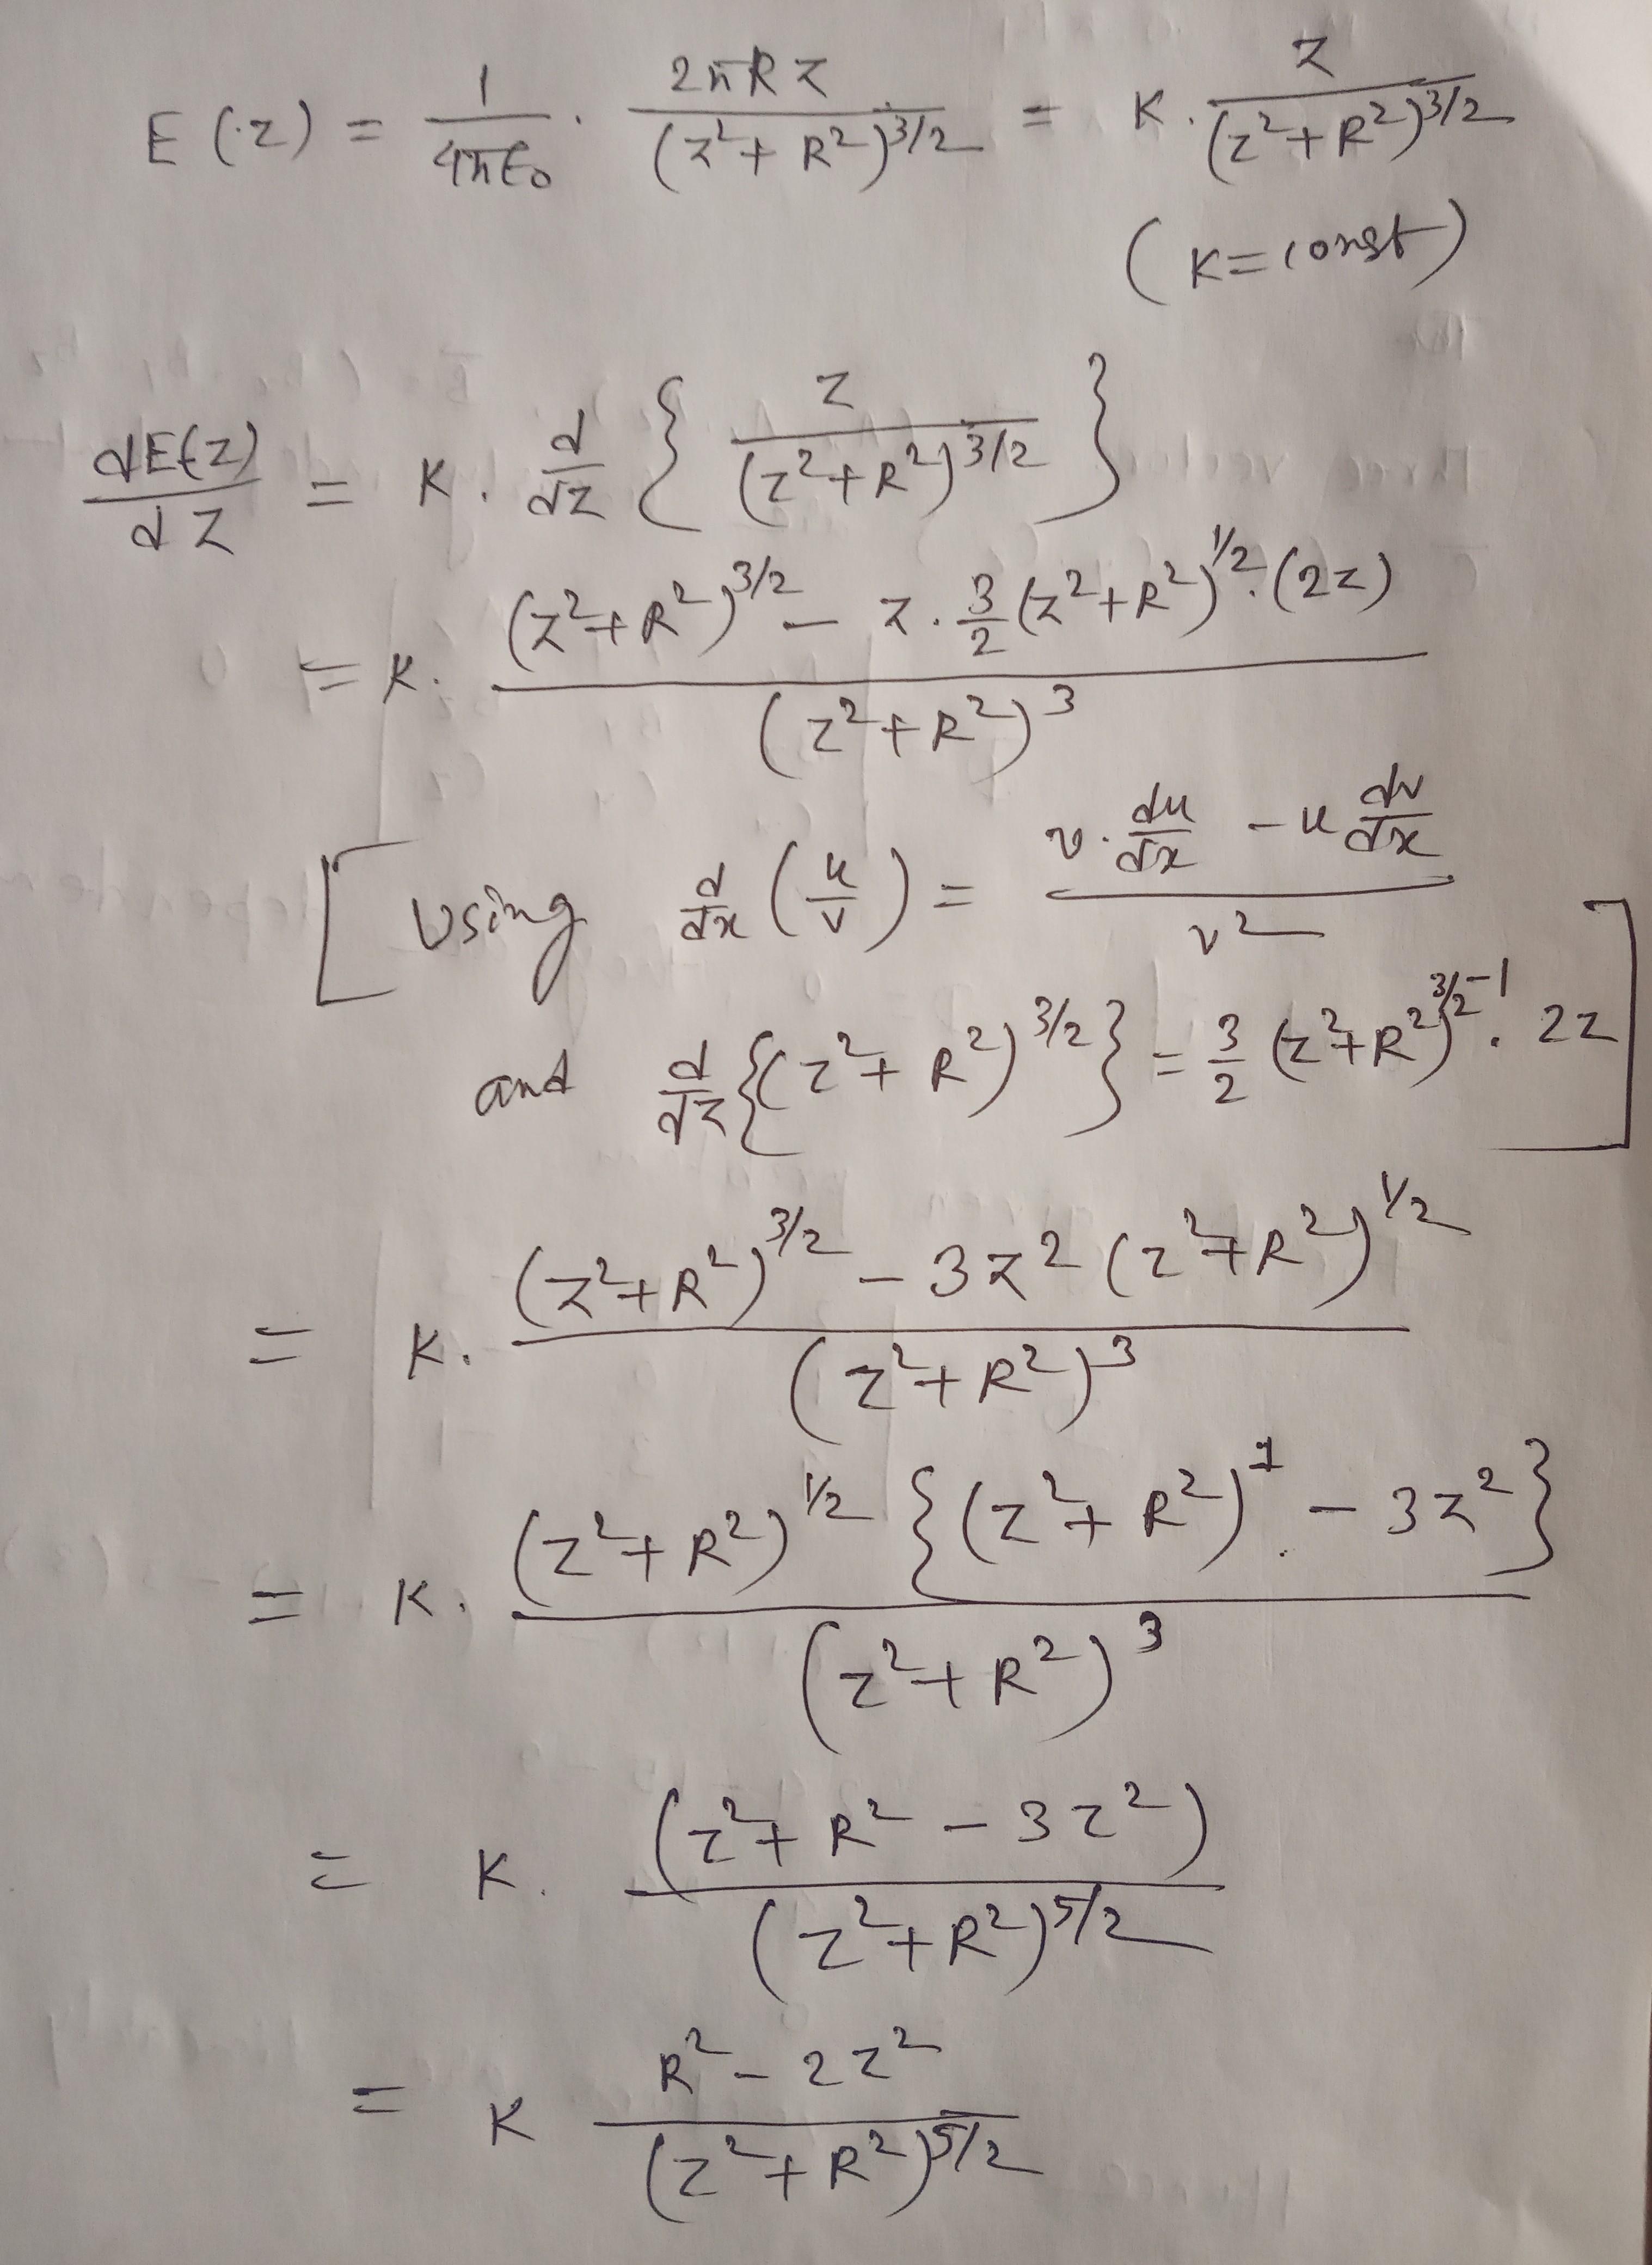 E(z) = 1/4πε₀ · 2πRz/(z²+R²)^3/2 = K · z/(z²+R²)^3/2
(K=const)
dE(z)/dz = K · d/dz { z/(z²+R²)^3/2 }
= K · ((z²+R²)^3/2 − z · 3/2 (z²+R²)^1/2 · (2z))/(z²+R²)^3
[Using d/dx (u/v) = (v · du/dx − u dv/dx)/v²
and d/dz {(z²+R²)^3/2} = 3/2 (z²+R²)^3/2−1 · 2z]
= K · ((z²+R²)^3/2 − 3z² (z²+R²)^1/2)/(z²+R²)^3
= K · ((z²+R²)^1/2 {(z²+R²)^1 − 3z²})/(z²+R²)^3
= K · (z²+R² − 3z²)/(z²+R²)^5/2
= K (R² − 2z²)/(z²+R²)^5/2